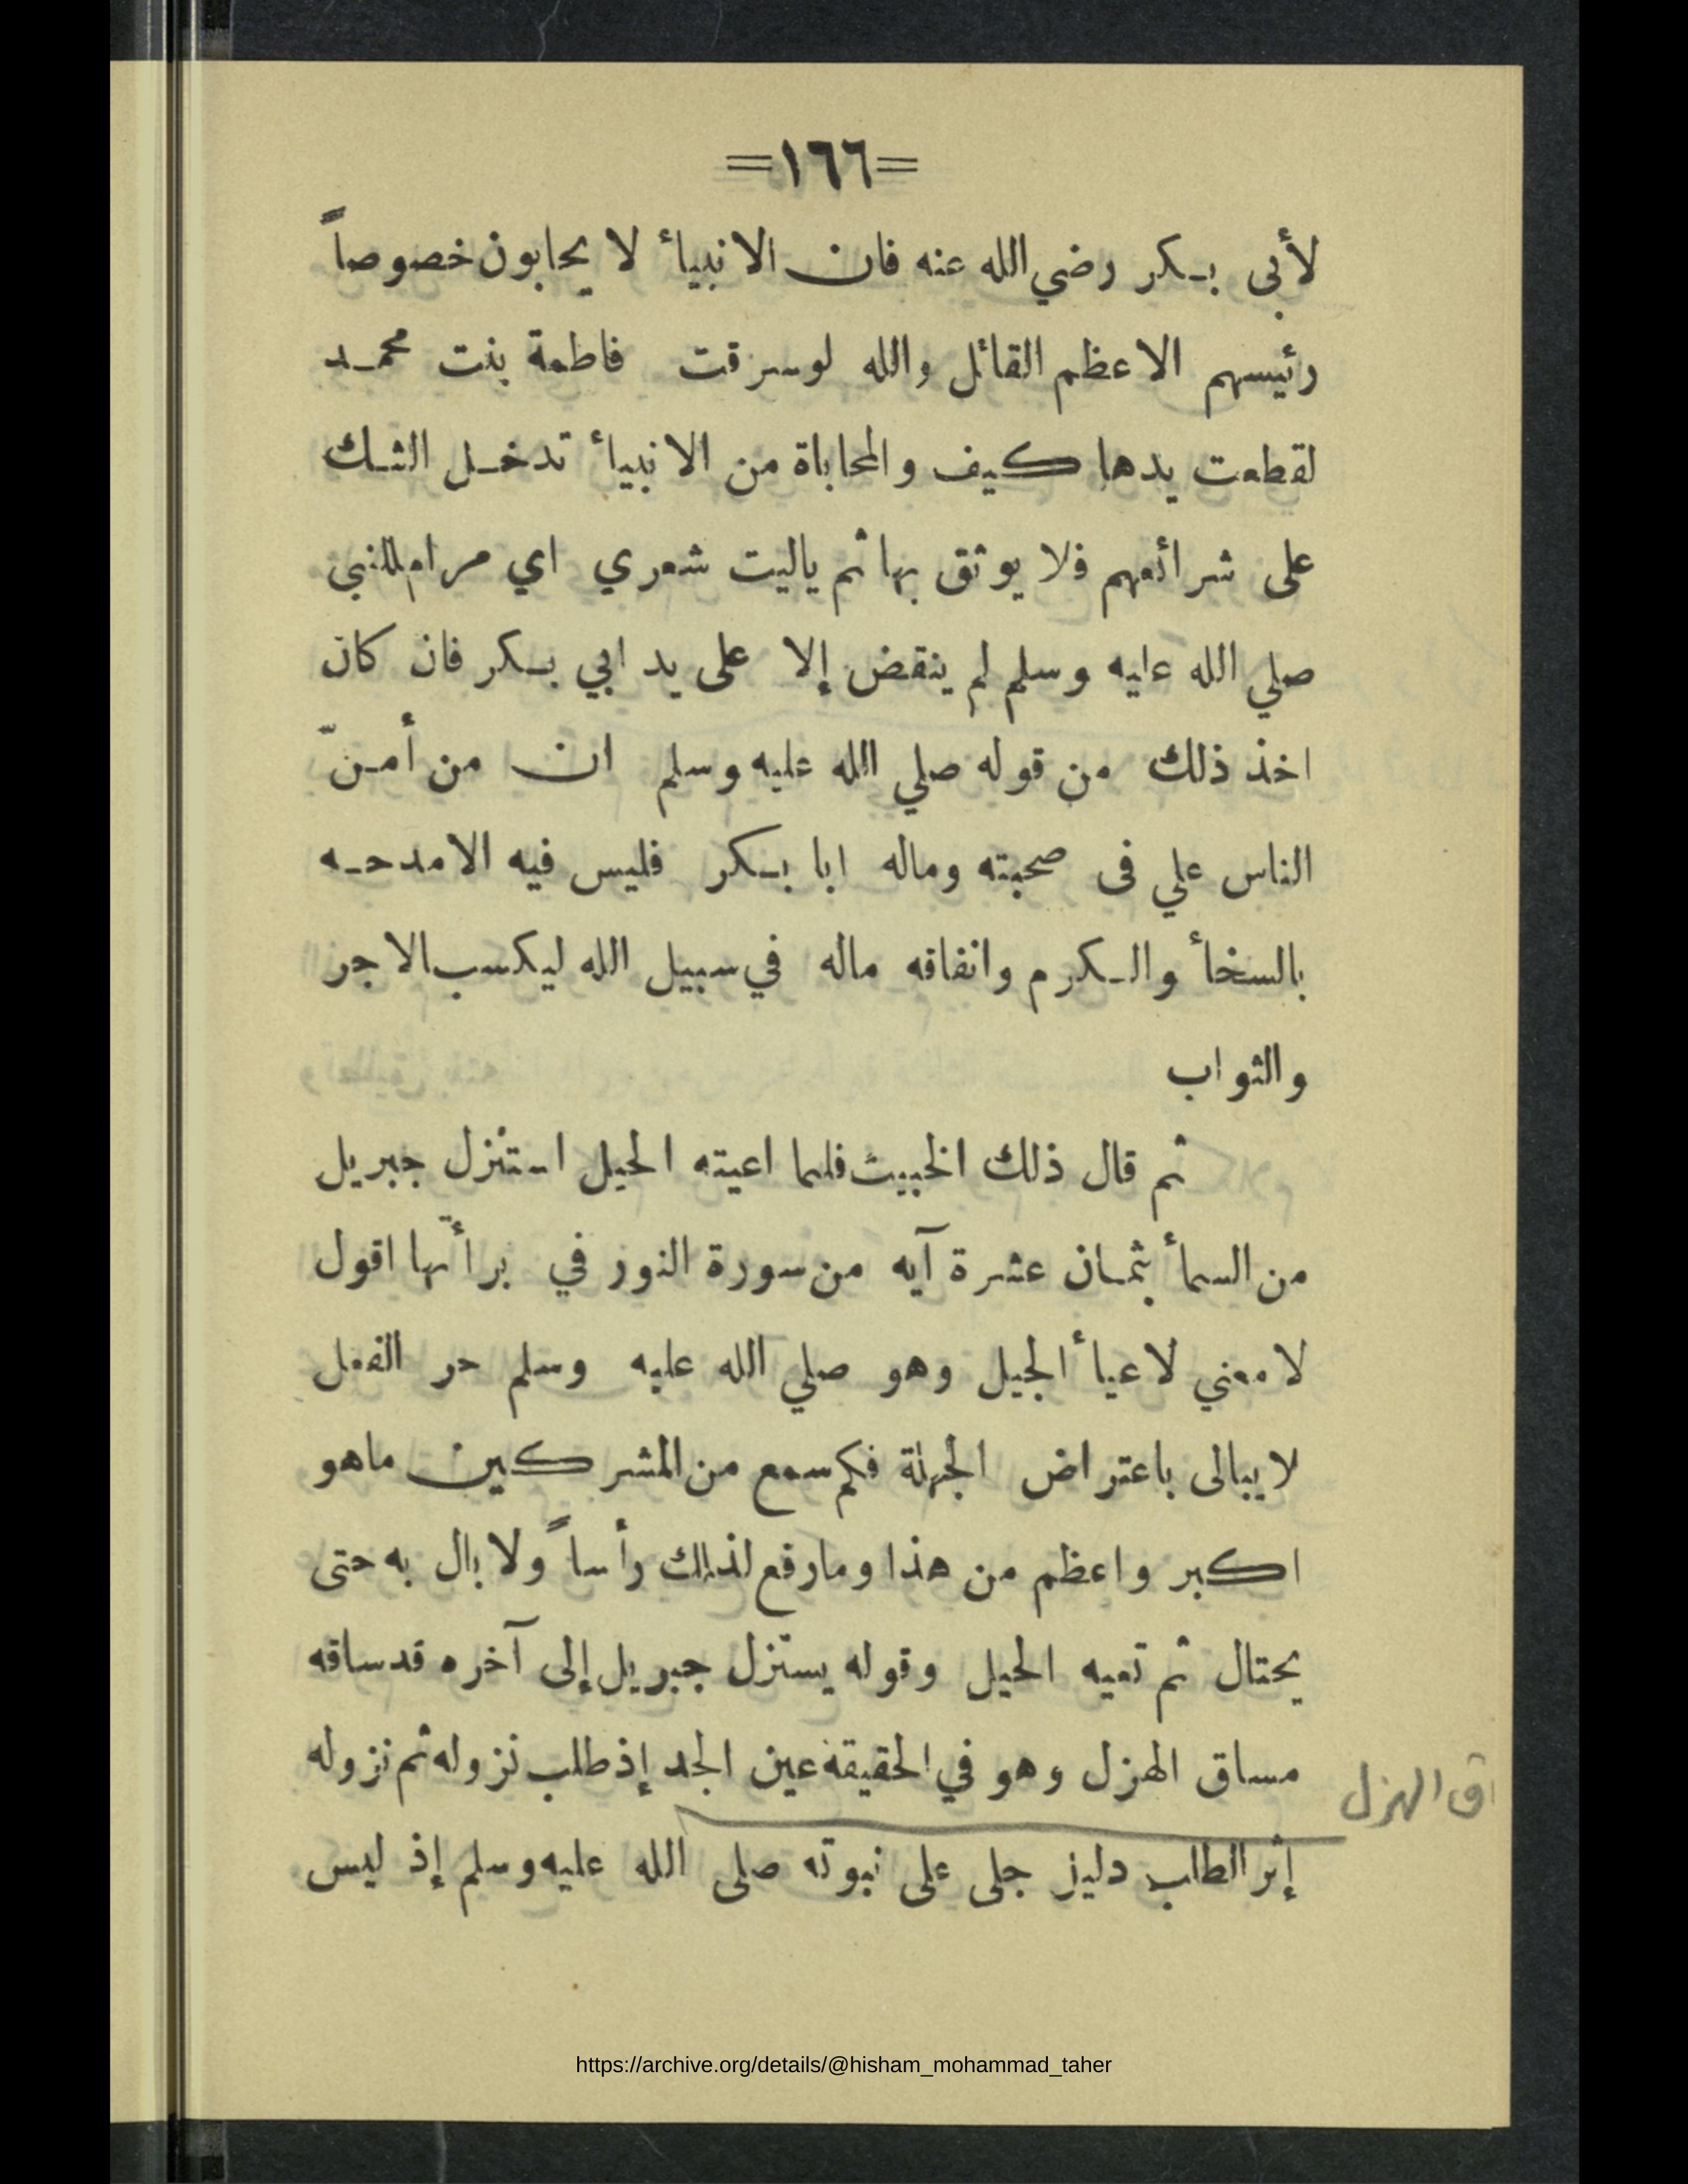 =١٦٦=
لأبى بكر رضي الله عنه فان الانبيأ لا يحابون خصوصاً
رئيسهم الاعظم القائل والله لوسرقت فاطمة بنت محمد
لقطعت يدها كيف والمحاباة من الانبيأ تدخل الشك
على شرائعهم فلا يوثق بها ثم ياليت شعري اي مرام للنبي
صلي الله عليه وسلم لم ينقض إلا على يد ابي بكر فان كان
اخذ ذلك من قوله صلي الله عليه وسلم ان من أمنّ
الناس علي فى صحبته وماله ابا بكر فليس فيه الامدحه
بالسخأ والكرم وانفاقه ماله في سبيل الله ليكسب الاجر
والثواب
ثم قال ذلك الخبيث فلما اعيته الحيل استنزل جبريل
من السمأ بثمان عشرة آيه من سورة النور في برأتها اقول
لا معني لاعيأ الجيل وهو صلي الله عليه وسلم حر الفعل
لا يبالى باعتراض الجهلة فكم سمع من المشركين ماهو
اكبر واعظم من هذا ومارفع لذلك رأساً ولا بال به حتى
يحتال ثم تعيه الحيل وقوله يستنزل جبريل إلى آخره قدساقه
مساق الهزل وهو في الحقيقة عين الجد إذ طلب نزوله ثم نزوله
اق الهزل
إثر الطلب دليز جلى على نبوته صلى الله عليه وسلم إذ ليس
https://archive.org/details/@hisham_mohammad_taher